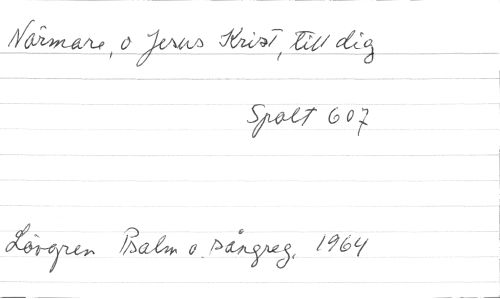 Närmare, o Jesus Krist, till dig
Spalt 607
Lövgren Psalm o. sångreg. 1964